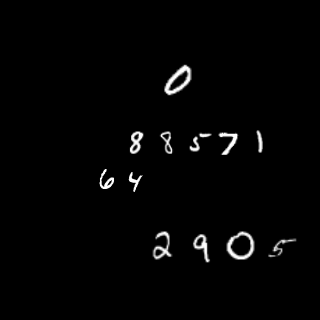 0
88571
64
2905